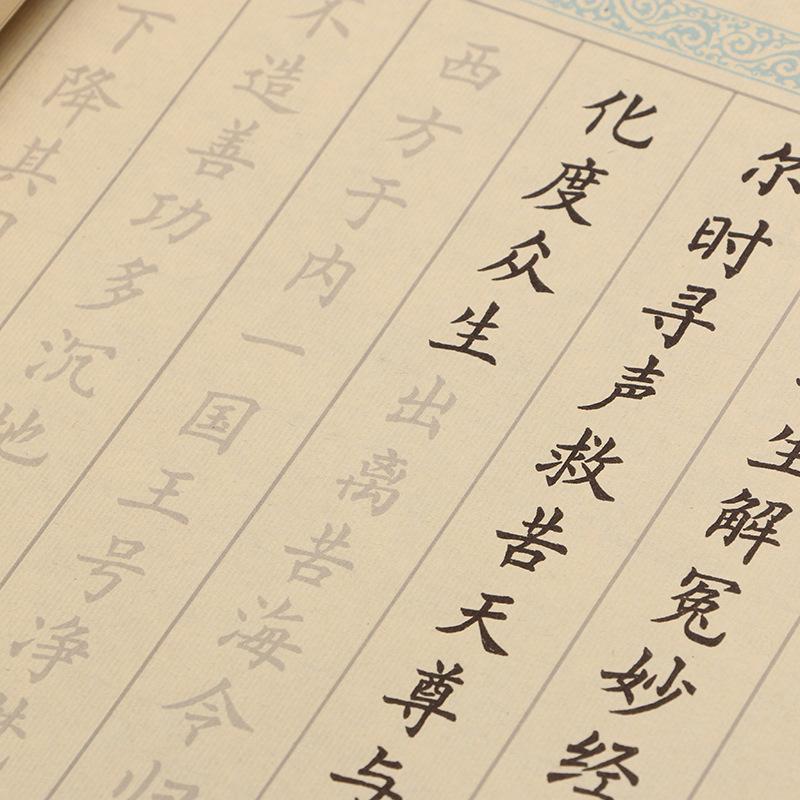 生解冤妙经
尔时寻声救苦天尊与
化度众生出离苦海令归
西方于内一国王号净
不造善功多沉地
下降其